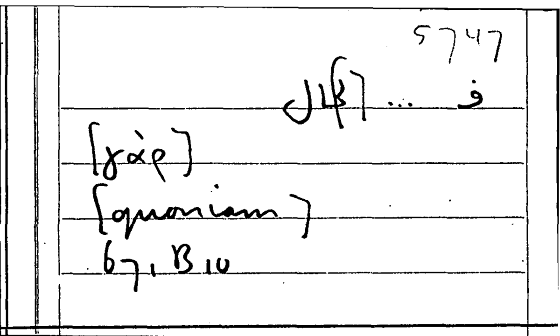 5747
ف ...
[γὰρ]
[quoniam]
67, B 10